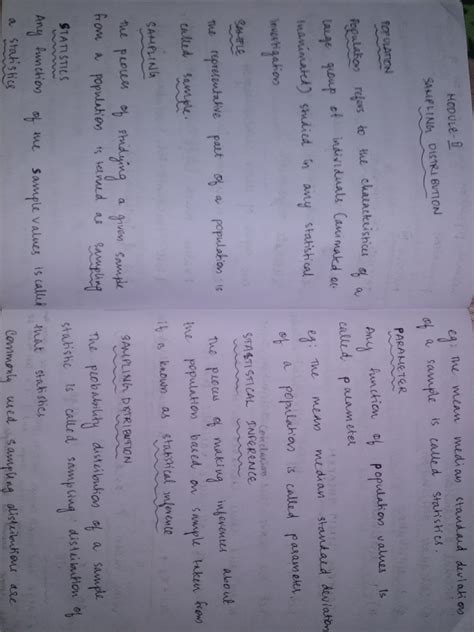 MODULE-II
SAMPLING DISTRIBUTION
POPULATION
Population refers to the characteristics of a
large group of individuals (animated or
inanimated) studied in any statistical
investigation
SAMPLE
the representative part of a population is
called sample.
SAMPLING
the process of studying a given sample
from a population is termed as sampling
STATISTICS
Any function of the sample values is called
a statistics
eg: the mean median standard deviation
of a sample is called statistics.
PARAMETER
Any function of population values is
called parameter
eg: the mean median standard deviation
of a population is called parameter.
STATISTICAL INFERENCE
The process of making inferences about
the population based on sample taken from
it is known as statistical inference
SAMPLING DISTRIBUTION
The probability distribution of a sample
statistic is called sampling distribution of
that statistics
Commonly used sampling distributions are